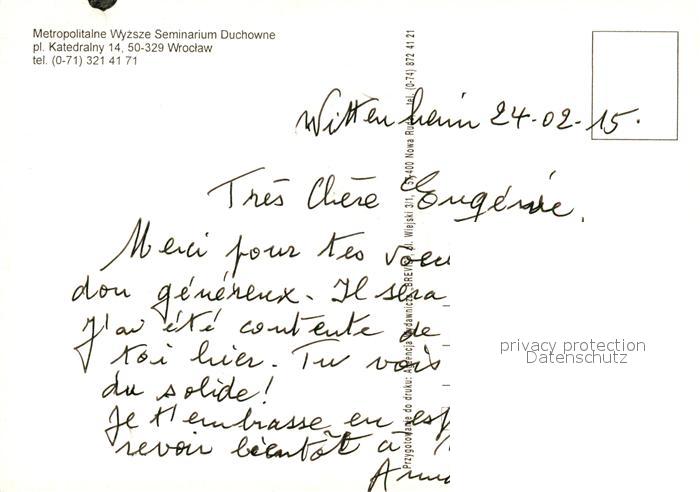 Metropolitalne Wyższe Seminarium Duchowne
pl. Katedralny 14, 50-329 Wrocław
tel. (0-71) 321 41 71
Wittenheim 24-02-15.
Très Chère Eugénie,
Merci pour tes voeu
don généreux. Il sera
J'ai été contente de
toi hier. Tu vois
du solide!
Je t'embrasse en esp
revoir bientôt à
Przygotowanie do druku: Agencja Wydawnicza "BREVIS", ul. Wiejski 3/1, 57-400 Nowa Ruda, tel. (0-74) 872 41 21
privacy protection
Datenschutz